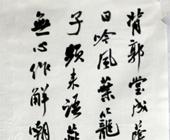 背郭堂成蔭
日吟風葉籠
子頻來語燕
無心作解嘲